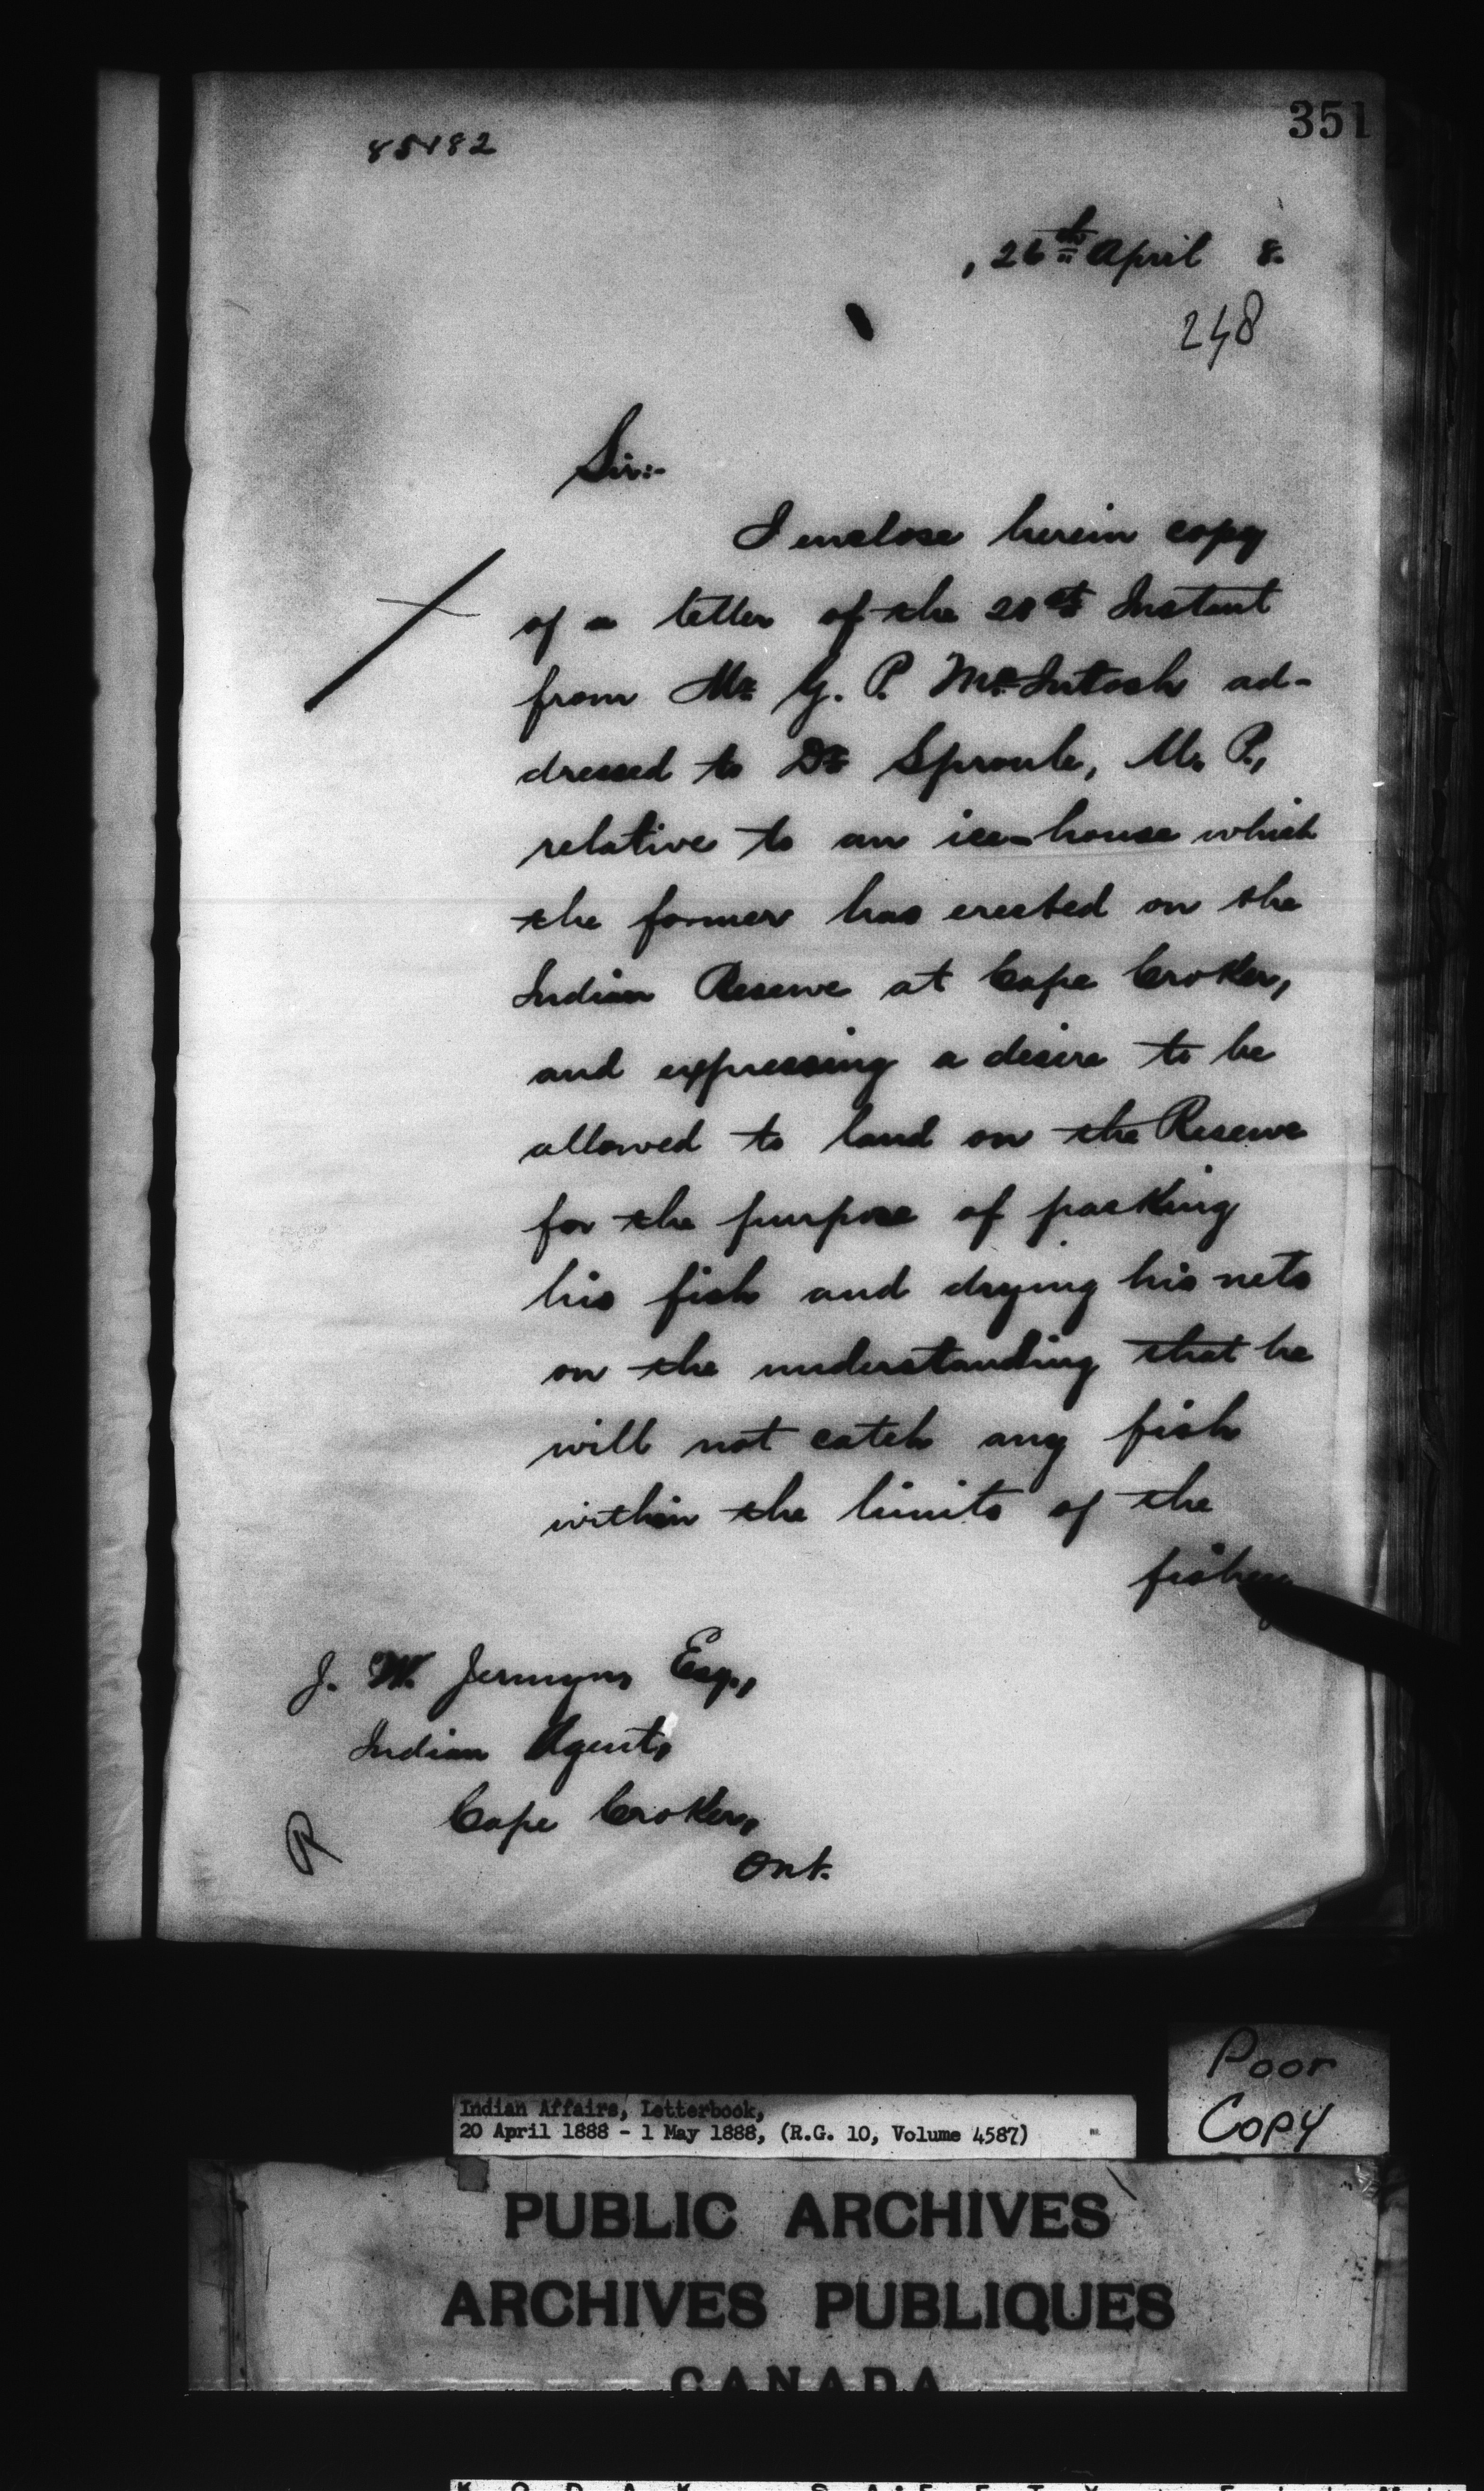 351
85182
, 26th April 8.
248
Sir:-
I enclose herein copy
of a letter of the Instant
from Mr G. P. McIntosh ad-
dressed to Dr Sproule, M. P.,
relative to an ice-house which
the former has erected on the
Indian Reserve at Cape Croker,
and expressing a desire to be
allowed to land on the Reserve
for the purpose of packing
his fish and drying his nets
on the understanding that he
will not catch any fish
within the limits of the
fishery
J. W. Jermyn, Esq.,
Indian Agent,
Cape Croker,
Ont.
R
Poor
Copy
Indian Affairs, Letterbook,
20 April 1888 - 1 May 1888, (R.G. 10, Volume 4587)
PUBLIC ARCHIVES
ARCHIVES PUBLIQUES
CANADA